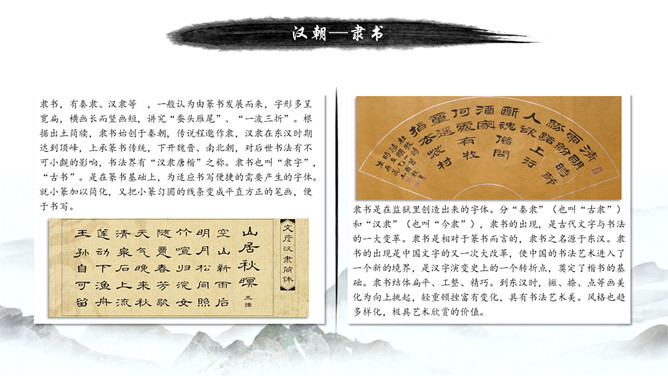 汉朝—隶书
隶书，有秦隶、汉隶等 ，一般认为由篆书发展而来，字形多呈
宽扁，横画长而竖画短，讲究“蚕头雁尾”、“一波三折”。根
据出土简牍，隶书始创于秦朝，传说程邈作隶，汉隶在东汉时期
达到顶峰，上承篆书传统，下开魏晋、南北朝，对后世书法有不
可小觑的影响，书法界有“汉隶唐楷”之称。隶书也叫“隶字”，
“古书”。是在篆书基础上，为适应书写便捷的需要产生的字体。
就小篆加以简化，又把小篆匀圆的线条变成平直方正的笔画，便
于书写。
文鼎汉隶简体
山居秋暝 王维
空山新雨后
明月松间照
竹喧归浣女
随意春芳歇
天气晚来秋
清泉石上流
莲动下渔舟
王孙自可留
隶书是在监狱里创造出来的字体。分“秦隶”（也叫“古隶”）
和“汉隶”（也叫“今隶”），隶书的出现，是古代文字与书法
的一大变革。隶书是相对于篆书而言的，隶书之名源于东汉。隶书
的出现是中国文字的又一次大改革，使中国的书法艺术进入了
一个新的境界，是汉字演变史上的一个转折点，奠定了楷书的基
础。隶书结体扁平、工整、精巧。到东汉时，撇、捺、点等画美
化为向上挑起，轻重顿挫富有变化，具有书法艺术美。风格也趋
多样化，极具艺术欣赏的价值。